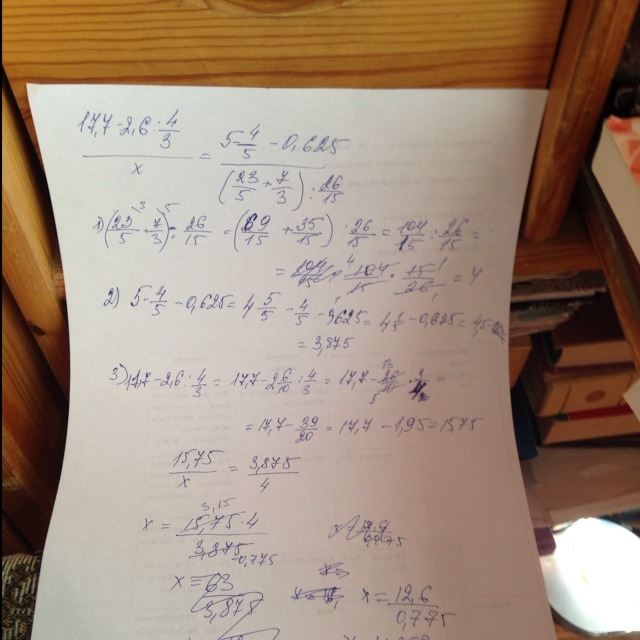 17,7 - 2,6 : 4/3 / x = 5 - 4/5 - 0,625 / (23/5 + 7/3) : 26/15
1) (23/5 + 7/3) : 26/15 = (69/15 + 35/15) : 26/15 = 104/15 : 26/15 =
= 104/15 · 15/26 = 4
2) 5 - 4/5 - 0,625 = 4 5/5 - 4/5 - 0,625 = 4 1/5 - 0,625 =
= 3,875
3) 17,7 - 2,6 : 4/3 = 17,7 - 2 6/10 : 4/3 = 17,7 - 26/10 · 3/4 =
= 17,7 - 39/20 = 17,7 - 1,95 = 15,75
15,75/x = 3,875/4
x = 15,75 · 4 / 3,875
3,15
0,775
x = 63/3,875
x = 12,6/0,775